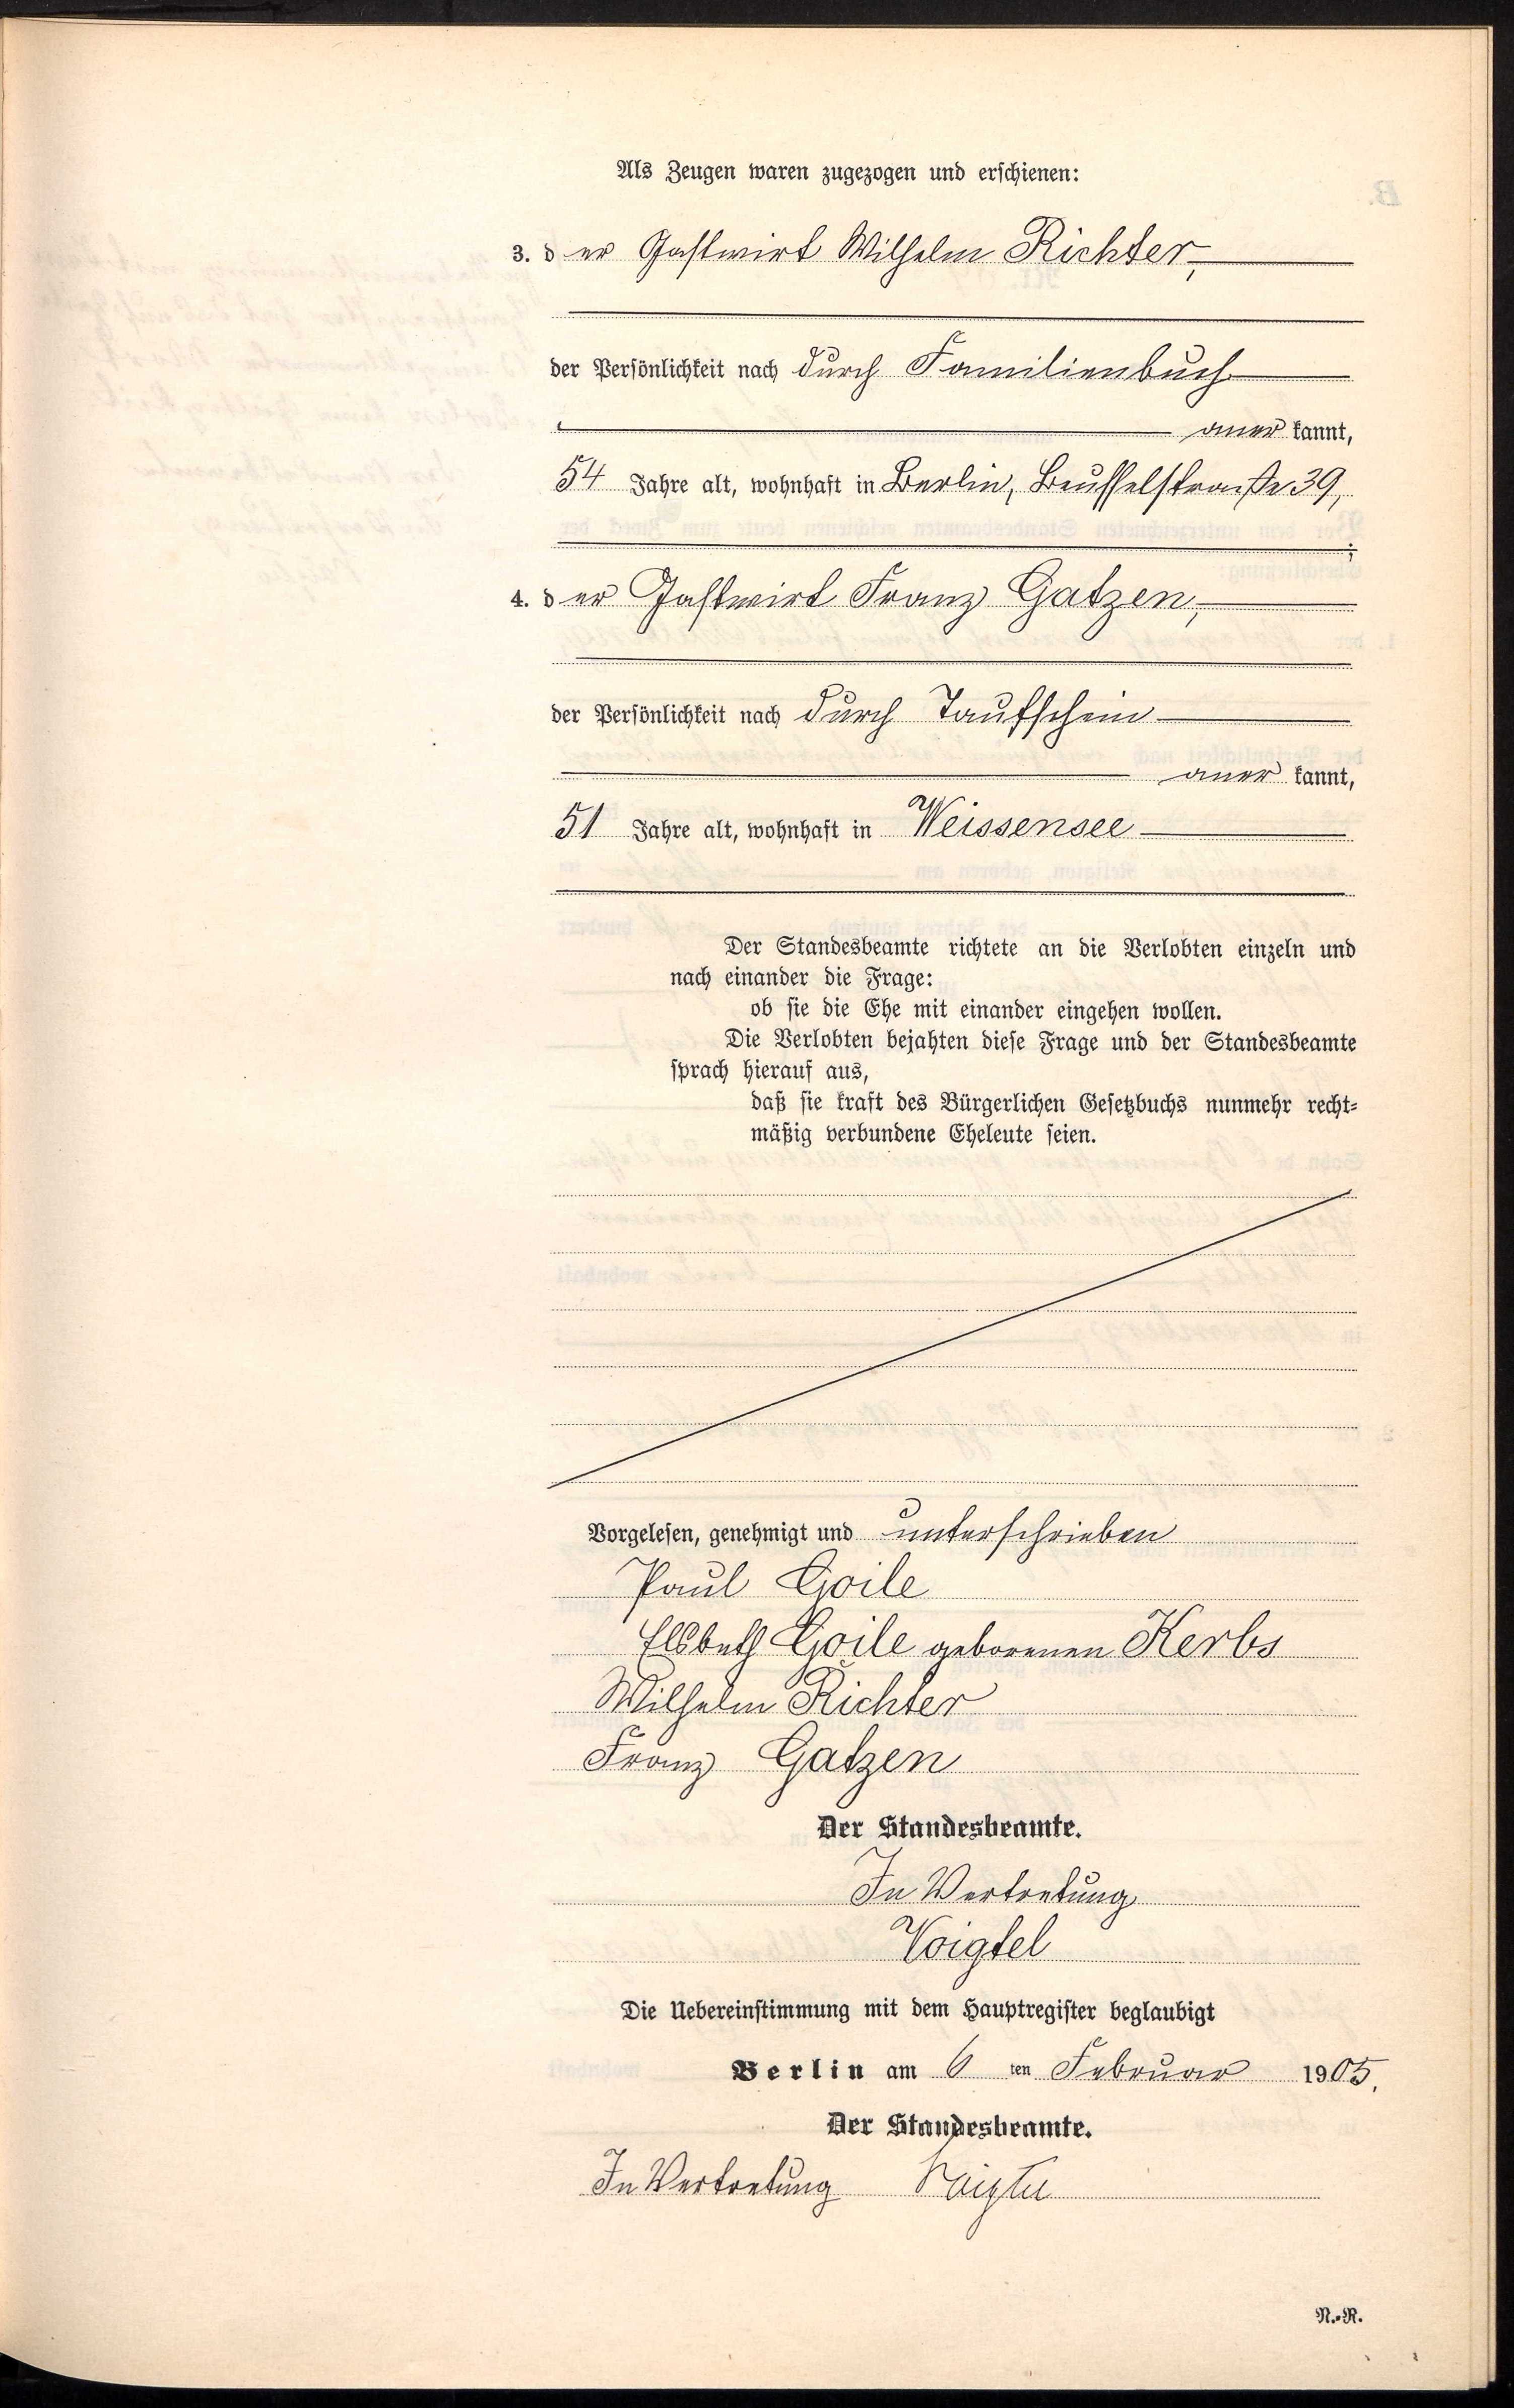 Als Zeugen waren zugezogen und erschienen:
3. der Gastwirt Wilhelm Richter,
der Persönlichkeit nach durch Familienbuch
anerkannt,
54 Jahre alt, wohnhaft in Berlin, Beusselstraße 39,
;
4. der Gastwirt Franz Gatzen,
der Persönlichkeit nach durch Taufschein
anerkannt,
51 Jahre alt, wohnhaft in Weissensee
Der Standesbeamte richtete an die Verlobten einzeln und
nach einander die Frage:
ob sie die Ehe mit einander eingehen wollen.
Die Verlobten bejahten diese Frage und der Standesbeamte
sprach hierauf aus,
daß sie kraft des Bürgerlichen Gesetzbuchs nunmehr recht-
mäßig verbundene Eheleute seien.
Vorgelesen, genehmigt und unterschrieben
Paul Goile
Elsbeth Goile geborenen Kerbs
Wilhelm Richter
Franz Gatzen
Der Standesbeamte.
In Vertretung
Voigtel
Die Uebereinstimmung mit dem Hauptregister beglaubigt
Berlin am 6 ten Februar 1905.
Der Standesbeamte.
In Vertretung Voigtel
N.-R.